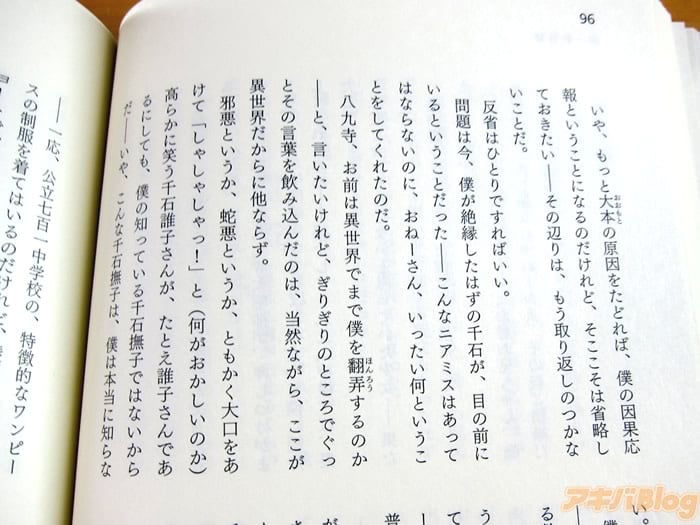 96
いや、もっと大本の原因をたどれば、僕の因果応
おおもと
報ということになるのだけれど、そこここそは省略し
ておきたい――その辺りは、もう取り返しのつかな
いことだ。
反省はひとりですればいい。
問題は今、僕が絶縁したはずの千石が、目の前に
いるということだった――こんなニアミスはあって
はならないのに、おねーさん、いったい何というこ
とをしてくれたのだ。
八九寺、お前は異世界でまで僕を翻弄するのか
ほんろう
――と、言いたいけれど、ぎりぎりのところでぐっ
とその言葉を飲み込んだのは、当然ながら、ここが
異世界だからに他ならず。
邪悪というか、蛇悪というか、ともかく大口をあ
けて「しゃしゃしゃっ！」と（何がおかしいのか）
高らかに笑う千石誰子さんが、たとえ誰子さんであ
るにしても、僕の知っている千石撫子ではないから
だ――いや、こんな千石撫子は、僕は本当に知らな
――一応、公立七百一中学校の、特徴的なワンピー
スの制服を着てはいるのだけれど、
い。
アキバBlog